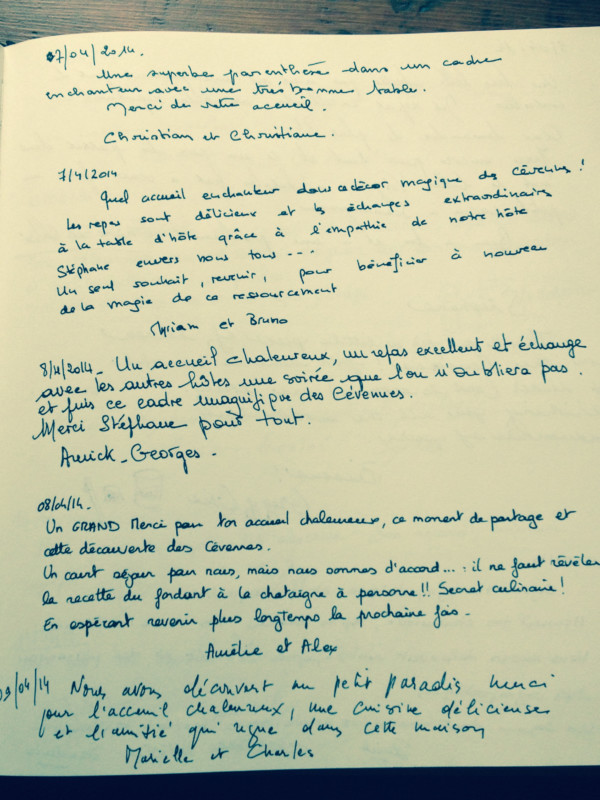 07/04/2014.
Une superbe parenthèse dans un cadre
enchanteur avec une très bonne table.
Merci de votre accueil.
Christian et Christiane.
7/4/2014
Quel accueil enchanteur dans ce décor magique des Cévennes !
Les repas sont délicieux et les échanges extraordinaires
à la table d'hôte grâce à l'empathie de notre hôte
Stéphane envers nous tous ---
Un seul souhait, revenir, pour bénéficier à nouveau
de la magie de ce ressourcement
Myriam et Bruno
8/4/2014 - Un accueil chaleureux, un repas excellent et échange
avec les autres hôtes une soirée que l'on n'oubliera pas.
et puis ce cadre magnifique des Cévennes.
Merci Stéphane pour tout.
Annick - Georges -
08/04/14.
Un GRAND Merci pour ton accueil chaleureux, ce moment de partage et
cette découverte des Cévennes.
Un court séjour pour nous, mais nous sommes d'accord.... : il ne faut révéler
la recette du fondant à la chataigne à personne !! Secret culinaire !
En espérant revenir plus longtemps la prochaine fois -
Amélie et Alex
09/04/14 Nous avons découvert un petit paradis merci
pour l'accueil chaleureux, une cuisine délicieuse
et l'amitié qui règne dans cette maison
Marielle et Charles